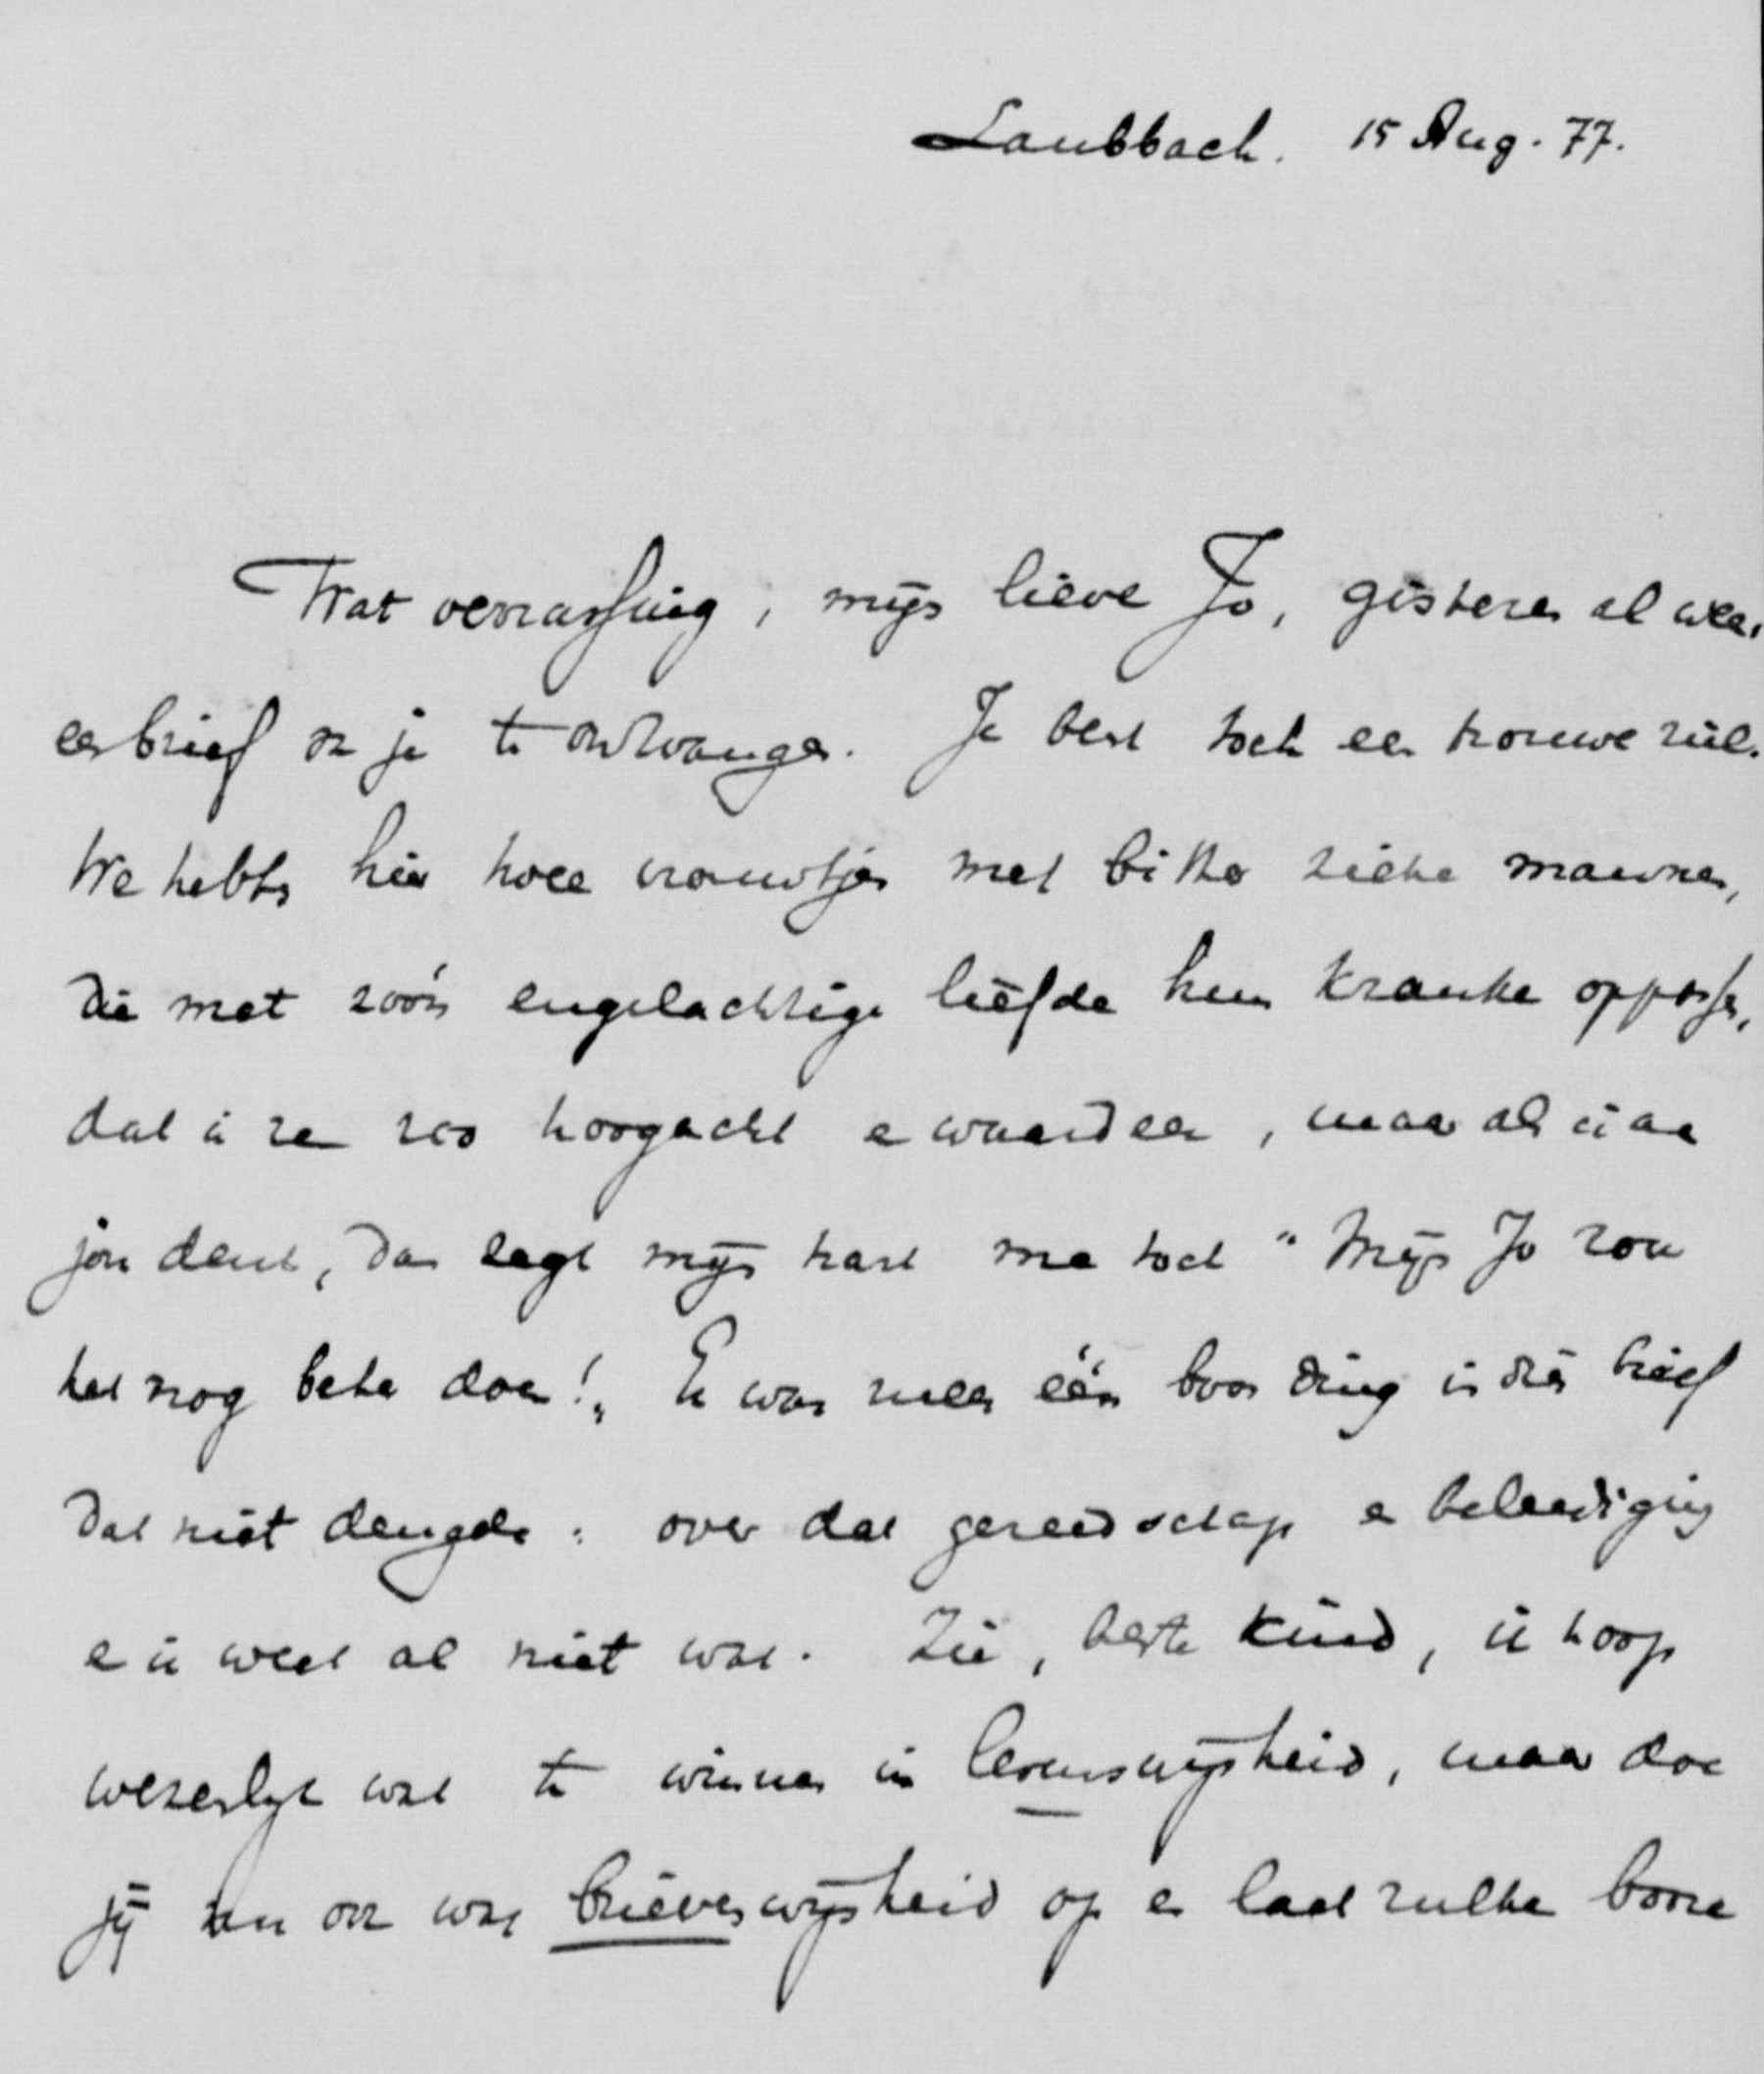 Laubbach. 15 Aug. 77.
Wat verrassing, mijn lieve Jo, gisteren al weer
een brief van je te ontvangen. Je bent toch een trouwe ziel.
We hebben hier twee vrouwtjes met bitter zieke mannen,
die met zoo'n engelachtige liefde hun kranke oppassen,
dat ik ze zoo hoogacht en waardeer, maar als ik aan
jou denk, dan zegt mijn hart me toch "Mijn Jo zou
het nog beter doen!" Er was maar één boos ding in dien brief
dat niet deugde: over dat gereedschap en beleediging
en ik weet al niet wat. Zie, beste kind, ik hoop
wezenlijk wat te winnen in levenswijsheid, maar doe
jij nu ook wat brievenwijsheid op en laat zulke booze